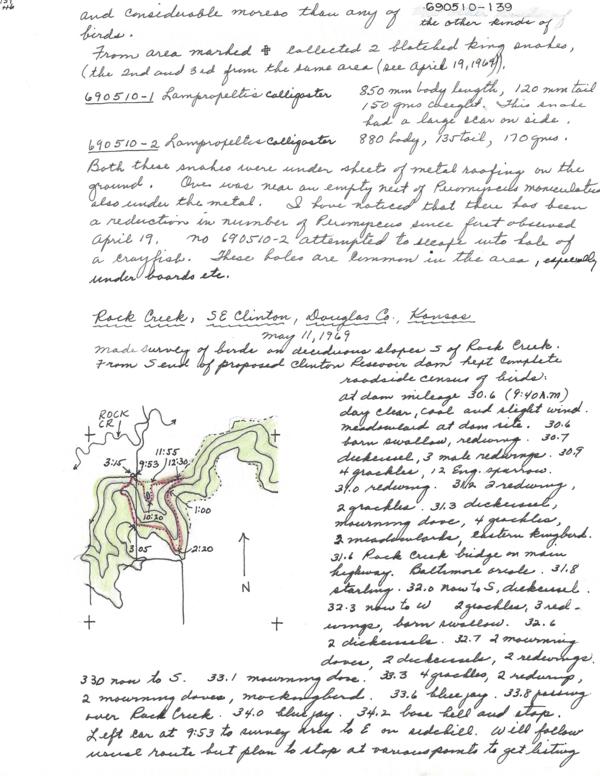 690510-139
and considerable moreso than any of the other kinds of
birds.
From area marked ✚ collected 2 blotched king snakes,
(the 2nd and 3rd from the same area (see April 19, 1969)).
690510-1 Lampropeltis calligaster 850 mm body length, 120 mm tail
150 gms weight. This snake
had a large scar on side.
690510-2 Lampropeltis calligaster 880 body, 135 tail, 170 gms.
Both these snakes were under sheets of metal roofing on the
ground. One was near an empty nest of Peromyscus maniculatus
also under the metal. I have noticed that there has been
a reduction in number of Peromyscus since first observed
April 19. no 690510-2 attempted to escape into hole of
a crayfish. These holes are common in the area, especially
under boards etc.
Rock Creek, SE Clinton, Douglas Co., Kansas
May 11, 1969
Made survey of birds on deciduous slopes S of Rock Creek.
From S end of proposed Clinton Resevoir dam kept complete
roadside census of birds:
at dam mileage 30.6 (9:40 A.M)
day clear, cool and slight wind.
meadowlark at dam site. 30.6
barn swallow, redwing. 30.7
dickcissel, 3 male redwings. 30.9
4 grackles, 12 Eng. sparrow.
31.0 redwing. 31.2 2 redwing,
2 grackles. 31.3 dickcissel,
mourning dove, 4 grackles,
2 meadowlarks, eastern kingbird.
31.6 Rock Creek bridge on main
highway. Baltimore oriole. 31.8
starling. 32.0 now to S, dickcissel.
32.3 now to W 2 grackles, 3 red-
wings, barn swallow. 32.6
2 dickcissels. 32.7 2 mourning
doves, 2 dickcissels, 2 redwings.
ROCK
CR.
11:55
3:15
9:53
12:30
10:20
1:00
3:05
2:20
N
33.0 now to S. 33.1 mourning dove. 33.3 4 grackles, 2 redwing,
2 mourning doves, mockingbird. 33.6 bluejay. 33.8 passing
over Rock Creek. 34.0 bluejay. 34.2 base hill and stop.
Left car at 9:53 to survey area to E on sidehill. Will follow
usual route but plan to stop at various points to get listing